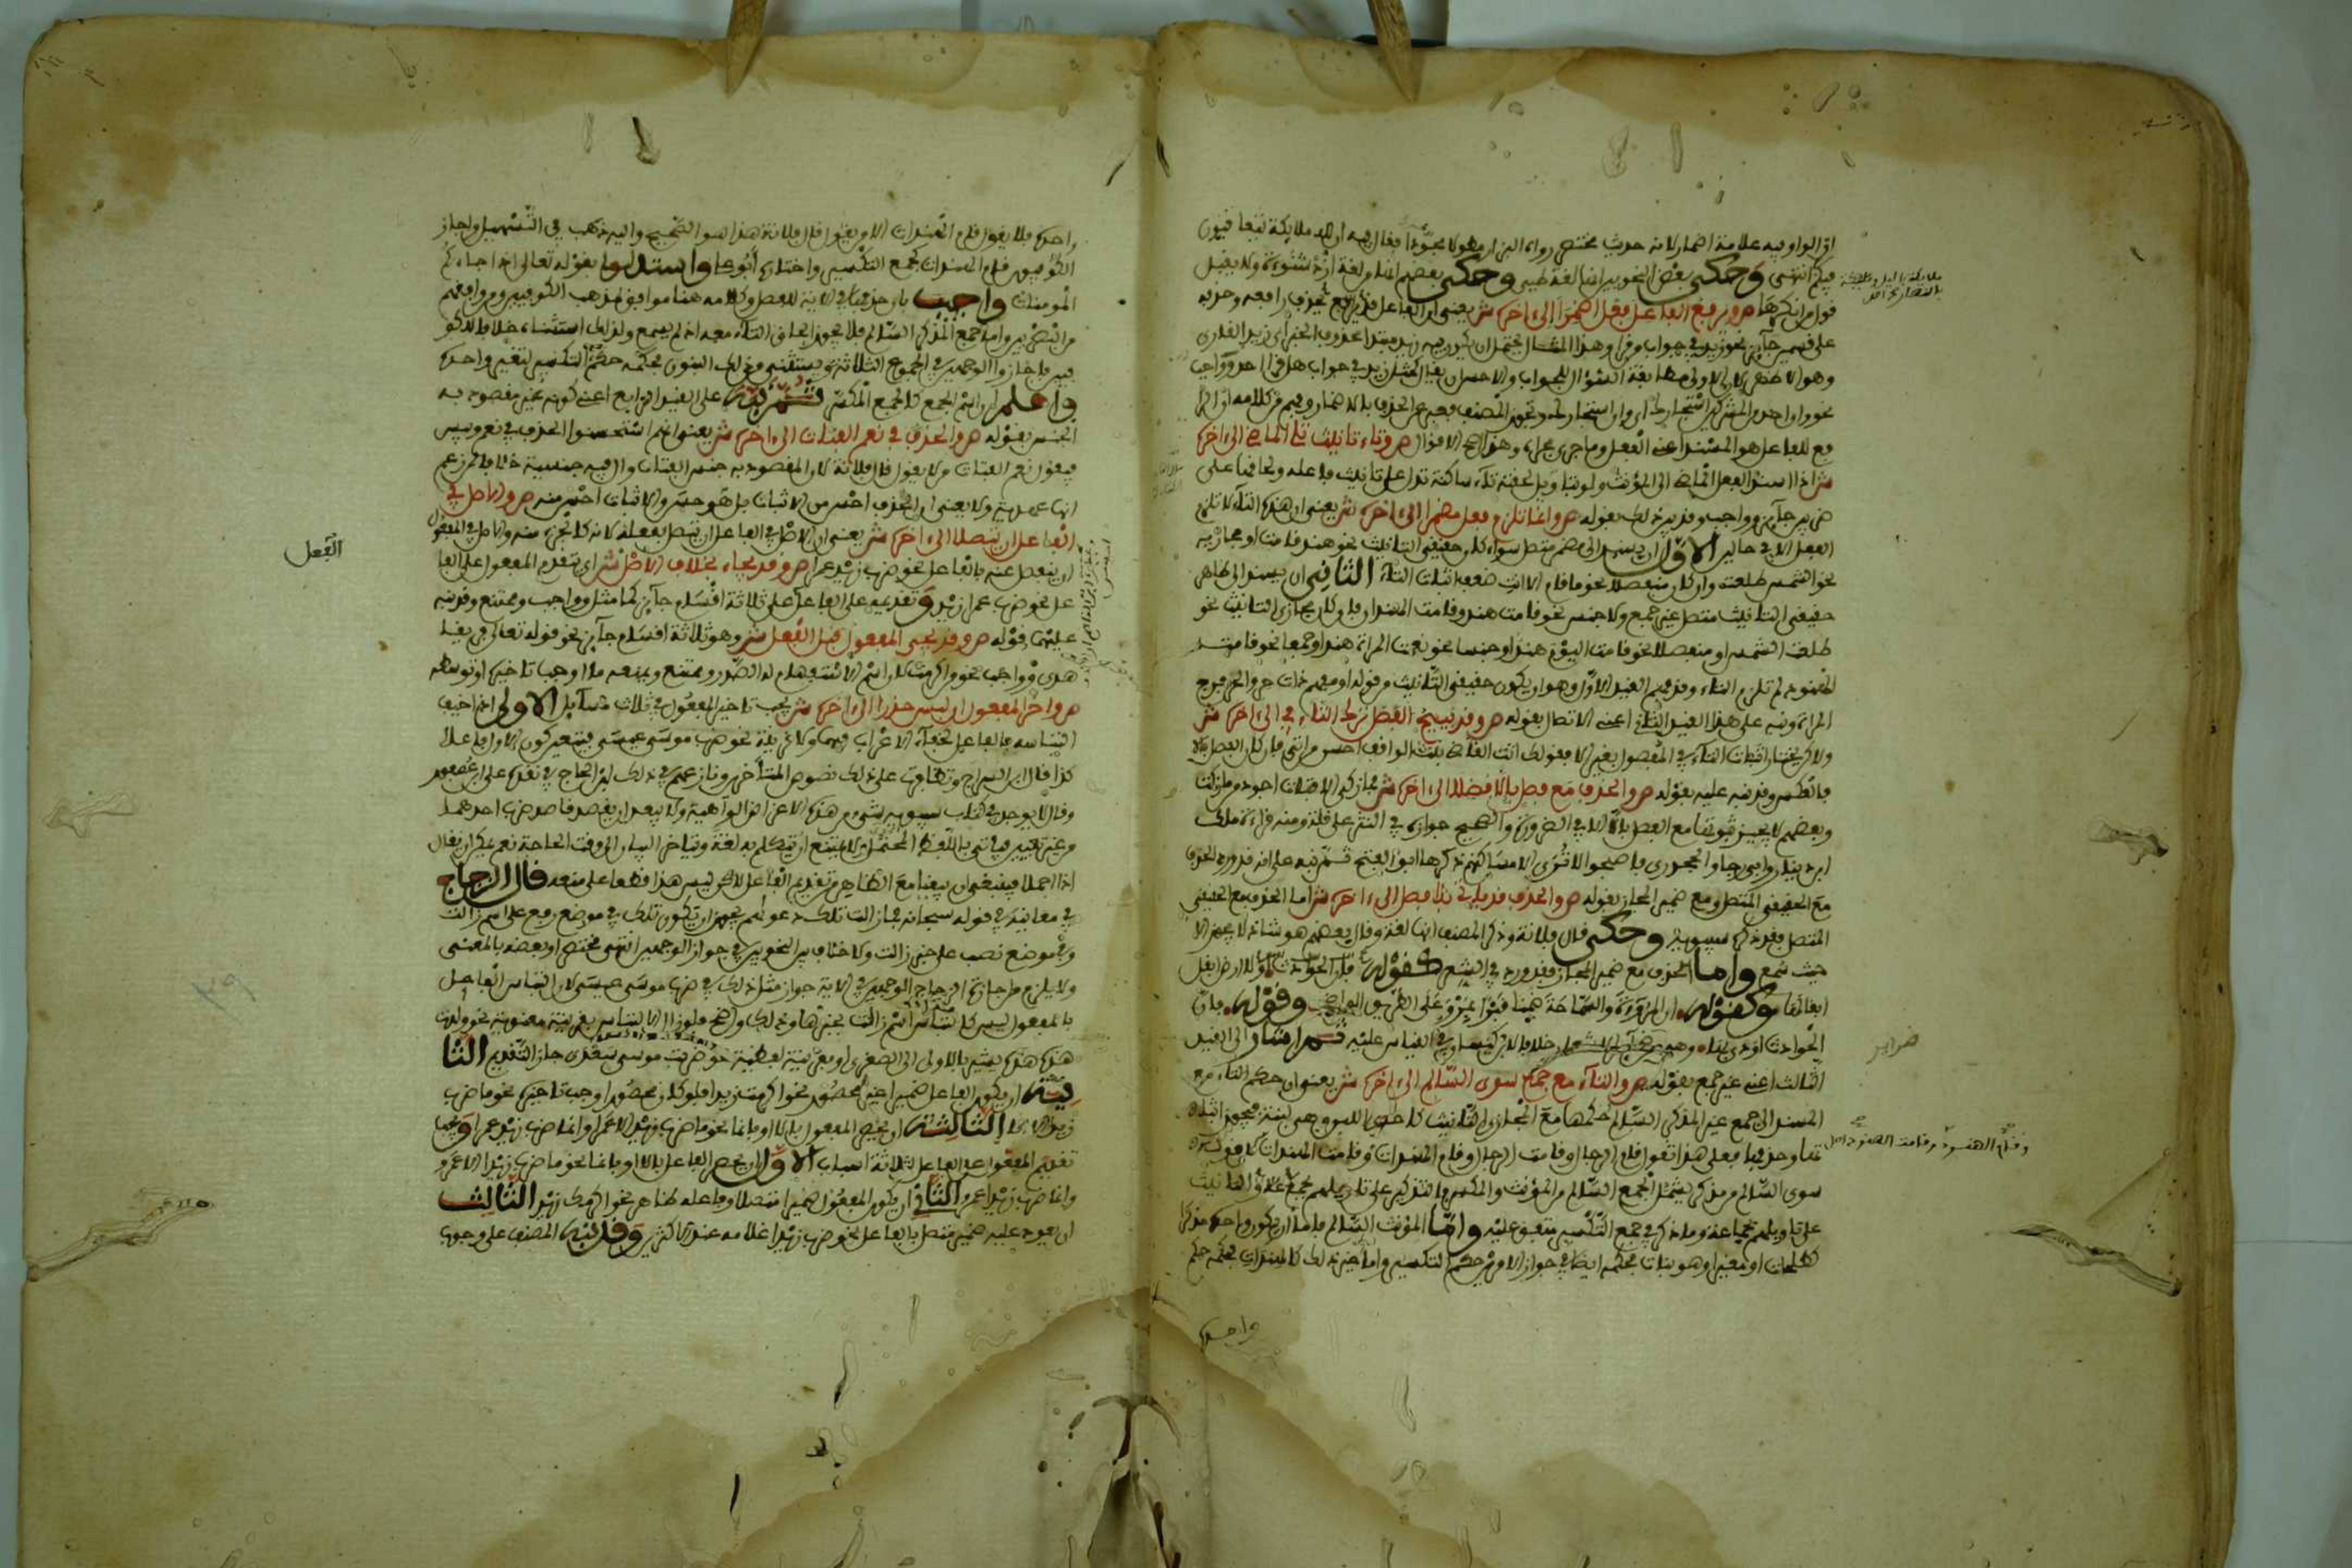 اذ الواو فيه علامة اضمار لانه حديث مختصر رواه البزار مطولا مجودا فقال فيه ان لله ملائكة يتعاقبون
فيكم انتهى وحكى بعض النحويين انها لغة طيء وحكى بعضهم انها لغة ازد شنوءة ولا يقبل
قول من انكرها ص ويرفع الفاعل فعل اضمرا الى اخره ش يعني ان الفاعل قد يرفع بحذف رافعه وحذفه
على قسمين جائز نحو زيد في جواب من قرا وهذا المثال يحتمل ان يكون فيه زيد مبتدا محذوف الخبر اي زيد القارئ
وهو الاظهر لان الاولى مطابقة السؤال للجواب والاحسن ان يقال كمثل زيد في جواب هل قرا احد وواجب
نحو وان احد من المشركين استجارك اي وان استجارك وتجوز المصنف فعبر عن الحذف بالاضمار وفهم من كلامه ان الرا
فع للفاعل هو المسند اعني الفعل وما جرى مجراه وهو اصح الاقوال ص وتاء تانيث تلي الماضي الى اخره
ش اذا اسند الفعل الماضي الى المؤنث ولو بتاويل لحقته تاء ساكنة تدل على تانيث فاعله ولحاقها على
ضربين جائز وواجب وقد بين ذلك بقوله ص وانما تلزم فعل مضمر الى اخره ش يعني ان هذه التاء لا تلزم
الفعل الا في حالين الاول ان يسند الى مضمر متصل سواء كان حقيقي التانيث نحو هند قامت او مجازيه
نحو الشمس طلعت وان كان منفصلا نحو ما قام الا انت ضعف اثبات التاء الثاني ان يسند الى ظاهر
حقيقي التانيث متصل غير جمع ولا جنس نحو قامت هند وقامت الهندان فلو كان مجازي التانيث نحو
طلعت الشمس او منفصلا نحو قامت اليوم هند او جنسا نحو نعمت المراة هند او جمعا نحو قامت
الهنود لم تلزم التاء وقد فهم القيد الاول وهو ان يكون حقيقي التانيث من قوله او مفهم ذات حر والحر فرج
المراة ونبه على هذا القيد الثاني اعني الاتصال بقوله ص وقد يبيح الفصل ترك التاء في الى اخره ش
ولاكن يختار اثبات التاء في المفصول بغير الا فقولك اتت القاضي بنت الواقف احسن من اتى فان كان الفصل بالا
فبالعكس وقد نبه عليه بقوله ص والحذف مع فصل بالا فضلا الى اخره ش فما زكى الا فتاة اجود من ما زكت
وبعضهم لا يجيز ثبوتها مع الفصل بالا الا في الضرورة والصحيح جوازه في النثر على قلة ومنه قراءة مالك
ابن دينار وابي رجاء والجحدري فاصبحوا لا ترى الا مساكنهم ذكرها ابو الفتح ثم نبه على انه قد ورد الحذف
مع الحقيقي المتصل ومع ضمير المجاز بقوله ص والحذف قد ياتي بلا فصل الى اخره ش اما الحذف مع الحقيقي
المتصل فقد ذكر سيبويه وحكى قال فلانة وذكر المصنف انها لغة وقال بعضهم هو شاذ لا يجوز الا
حيث سمع واما الحذف مع ضمير المجاز فقد ورد في الشعر كقوله ولا ارض ابقل
ابقالها وكقوله ان السماحة والمروءة ضمنا قبرا بمرو على الطريق الواضح وقوله فان
الحوادث اودى بها وهو خلافا لابن كيسان في القياس عليه ثم اشار الى القيد
الثالث اعني غير جمع بقوله ص والتاء مع جمع سوى السالم الى اخره ش يعني ان حكم التاء مع
المسند الى جمع غير المذكر السالم حكمها مع المجازي التانيث كاحدى اللبن وهي لبنة فيجوز اثبا
تها وحذفها فعلى هذا تقول قام الرجال وقامت الرجال وقام الهندات وقامت الهندات لان قوله
سوى السالم من مذكر يشمل الجمع السالم من المؤنث والمكسر فالتذكير على تاويلهم بجمع والتانيث
على تاويلهم بجماعة وما ذكر في جمع التكسير متفق عليه واما المؤنث السالم فاما ان يكون واحده مذكرا
كطلحات او مغيرا وهو بنات فحكمه ايضا في جواز الامرين حكم التكسير واما غير ذلك كالهندات فحكمه حكم
واحده
ضراير
واحده فلا يقول قام الهندات الا من يقول قال فلانة هذا هو الصحيح واليه ذهب في التسهيل واجاز
الكوفيون قام الهندات كجمع التكسير واختاره ابو علي واستدلوا بقوله تعالى اذا جاءكم
المومنات واجيب بان حذفها في الاية للفصل وكلامه هنا موافق لمذهب الكوفيين ومن وافقهم
من البصريين واما جمع المذكر السالم فلا يجوز الحاق التاء معه اذ لم يسمع ولذلك استثناه خلافا للكو
فيين فاجازوا الوجهين في الجموع الثلاثة ويستثنى من ذلك البنون فحكمه حكم التكسير لتغير واحده
واعلم ان اسم الجمع كالجمع المكسر ثم نبه على القيد الرابع اعني كونه غير مقصود به
الجنس بقوله ص والحذف في نعم الفتاة الى اخره ش يعني انهم استحسنوا الحذف في نعم وبيس
فيقول نعم الفتاة من لا يقول قال فلانة لان المقصود به جنس الفتاة وال فيه جنسية خلافا لمن زعم
انها عهدية ولا يعني ان الحذف احسن من الاثبات بل هو حسن والاثبات احسن منه ص والاصل في
الفاعل ان يتصلا الى اخره ش يعني ان الاصل في الفاعل ان يتصل بفعله لانه كالجزء منه والاصل في المفعول
ان ينفصل عنه بالفاعل نحو ضرب زيد عمرا ص وقد يجاء بخلاف الاصل ش اي بتقدم المفعول على الفا
عل نحو ضرب عمرا زيد وتقديمه على الفاعل على ثلاثة اقسام جائز كما مثل وواجب وممتنع وقد نبه
عليهما قوله ص وقد يجي المفعول قبل الفعل ش وهو ثلاثة اقسام جائز نحو قوله تعالى فريقا
هدى وواجب نحو من اكرمت لان اسم الاستفهام له الصدر وممتنع ويمنعه ما اوجب تاخيره او توسطه
ص واخر المفعول ان لبس حذر الى اخره ش يجب تاخير المفعول في ثلاث مسائل الاولى اذا خيف
التباسه بالفاعل لخفاء الاعراب فيهما ولا قرينة نحو ضرب موسى عيسى فيتعين كون الاول فاعلا
كذا قال ابن السراج وتظافرت على ذلك نصوص المتاخرين ونازعهم في ذلك ابن الحاج في نقده على ابن عصفور
وقال لا يوجد في كتاب سيبويه شيء من هذه الاغراض الواهية ولا يبعد ان يقصد قاصد ضرب احدهما
من غير تعيين فياتي باللفظ المحتمل ولا يمتنع ان يتكلم به لغة ويتاخر البيان الى وقت الحاجة نعم يمكن ان يقال
اذا اجملا فينبغي ان يبقيا مع الظاهر من تقديم الفاعل لاكن ليس هذا قطعا على منعه قال الزجاج
في معانيه في قوله سبحانه فما زالت تلك دعواهم يجوز ان تكون تلك في موضع رفع على اسم زالت
وفي موضع نصب على خبر زالت ولا خلاف بين النحويين في جواز الوجهين انتهى مختصرا وبعضه بالمعنى
ولا يلزم من اجازة الزجاج الوجهين في الاية جواز مثل ذلك في ضرب موسى عيسى لان التباس الفاعل
بالمفعول ليس كالتباس اسم زالت بخبرها وذلك واضح فلو زال الالتباس بقرينة معنوية نحو ولدت
هذه هذه يشير بالاولى الى الصغرى او بقرينة لفظية نحو ضربت موسى سعدى جاز التقديم الثا
نية ان يكون الفاعل ضميرا غير محصور نحو اكرمت زيدا فلو كان محصورا وجب تاخيره نحو ما ضرب
زيدا الا انا الثالثة ان يحصر المفعول بالا او بانما نحو ما ضرب زيد الا عمرا وانما ضرب زيد عمرا ويجب
تقديم المفعول على الفاعل لثلاثة اسباب الاول ان يحصر الفاعل بالا او بانما نحو ما ضرب زيدا الا عمرو
وانما ضرب زيدا عمرو الثاني ان يكون المفعول ضميرا متصلا وفاعله ظاهر نحو اكرمك زيد الثالث
ان يعود عليه ضمير متصل بالفاعل نحو ضرب زيدا غلامه عند الاكثر وقد نبه المصنف على وجوب
الفعل